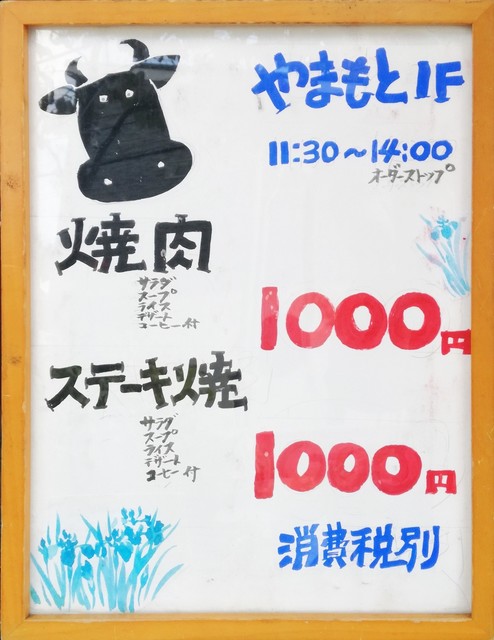 やまもと1F
11:30～14:00
オーダーストップ
焼肉
サラダ
スープ
ライス
デザート
コーヒー付
1000円
ステーキ焼
サラダ
スープ
ライス
デザート
コーヒー付
1000円
消費税別